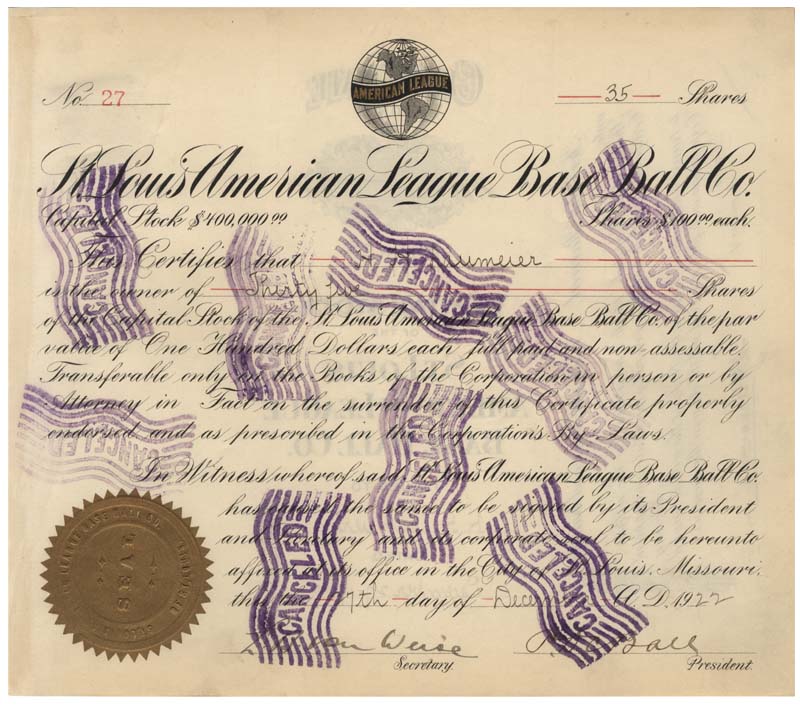 AMERICAN LEAGUE
No. 27
35 Shares
St. Louis American League Base Ball Co.
Capital Stock $400,000.00 Shares $100.00 each.
This Certifies that
is the owner of Thirty five Shares
of the Capital Stock of the St. Louis American League Base Ball Co. of the par
value of One Hundred Dollars each full paid and non-assessable.
Transferable only on the Books of the Corporation in person or by
Attorney in Fact on the surrender of this Certificate properly
endorsed and as prescribed in the Corporation's By-Laws.
In Witness whereof said St. Louis American League Base Ball Co.
has caused the same to be signed by its President
and Secretary and its corporate seal to be hereunto
affixed at its office in the City of St. Louis, Missouri.
this the 7th day of December A.D. 1922
Secretary. Ball President.
SEAL
CANCELED
CANCELED
CANCELED
CANCELED
CANCELED
CANCELED
CANCELED
CANCELED
CANCELED